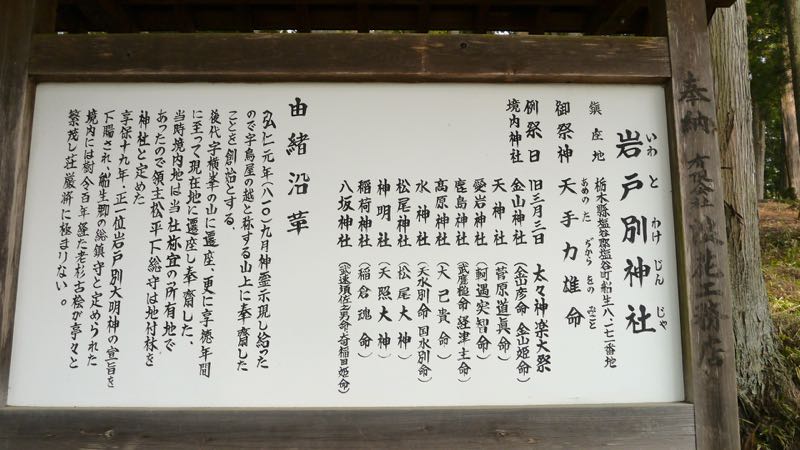 岩戸別神社
いわとわけじんじゃ
鎮座地 栃木県塩谷郡塩谷町船生八、二七一番地
御祭神 天手力雄命
あめのたぢからをのみこと
例祭日 旧三月三日 太々神楽大祭
境内神社 金山神社 (金山彦命 金山姫命)
天神社 (菅原道真命)
愛岩神社 (軻遇突智命)
鹿島神社 (武甕槌命 経津主命)
高原神社 (大己貴命)
水神社 (天水別命 国水別命)
松尾神社 (松尾大神)
神明社 (天照大神)
稲荷神社 (稲倉魂命)
八坂神社 (武速須佐之男命 奇稲田姫命)
由緒沿革
弘仁元年(八一〇)九月神霊示現し給った
ので字鳥屋の越と称する山上に奉齋した
ことを創始とする、
後代字横峯の山に遷座、更に享徳年間
に至って、現在地に遷座し奉齋した、
当時境内地は当社祢宜の所有地で
あったので領主松平下総守は地付林を
神社と定めた
享保十九年、正一位岩戸別大明神の宣旨を
下賜され、船生郷の総鎮守と定められた
境内には樹令百年経た老杉古桧が亭々と
繁茂し荘厳将に極まりない。
奉納 有限会社 花工務店